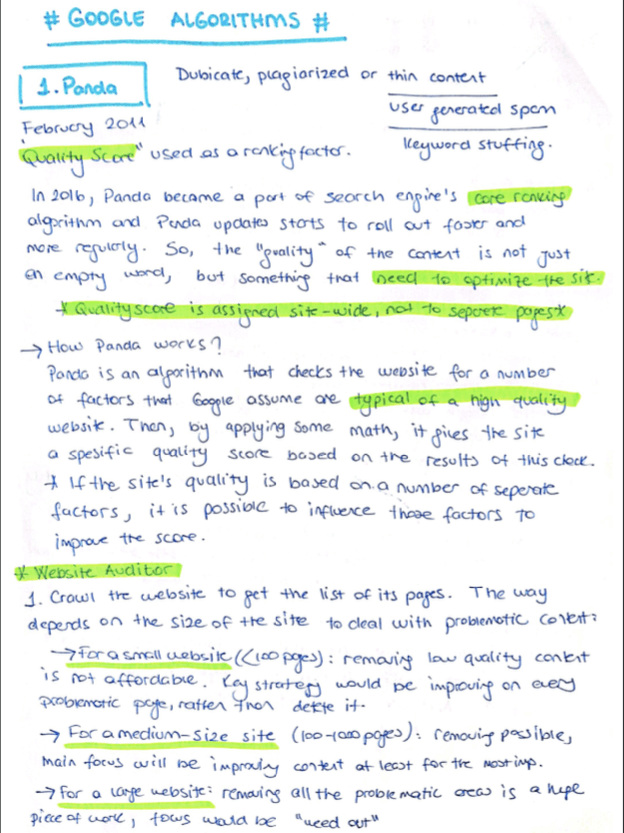 # GOOGLE ALGORITHMS #
1. Panda
Dubicate, plagiarized or thin content
user generated spam
Keyword stuffing.
February 2011
"Quality Score" used as a ranking factor.
In 2016, Panda became a part of search engine's core ranking
algorithm and Panda updates starts to roll out faster and
more regularly. So, the "quality" of the content is not just
an empty word, but something that need to optimize the site.
* Quality score is assigned site-wide, not to seperate pages *
→ How Panda works?
Panda is an algorithm that checks the website for a number
of factors that Google assume are typical of a high quality
website. Then, by applying some math, it gives the site
a spesific quality score based on the results of this check.
* If the site's quality is based on a number of seperate
factors, it is possible to influence those factors to
improve the score.
* Website Auditor
1. Crawl the website to get the list of its pages. The way
depends on the size of the site to deal with problematic content:
→ For a small website (<100 pages): removing low quality content
is not affordable. Key strategy would be improving on every
problematic page, rather than delete it.
→ For a medium-size site (100-1000 pages): removing possible,
main focus will be improving content at least for the most imp.
→ For a large website: removing all the problematic areas is a huge
piece of work, focus would be "weed out"